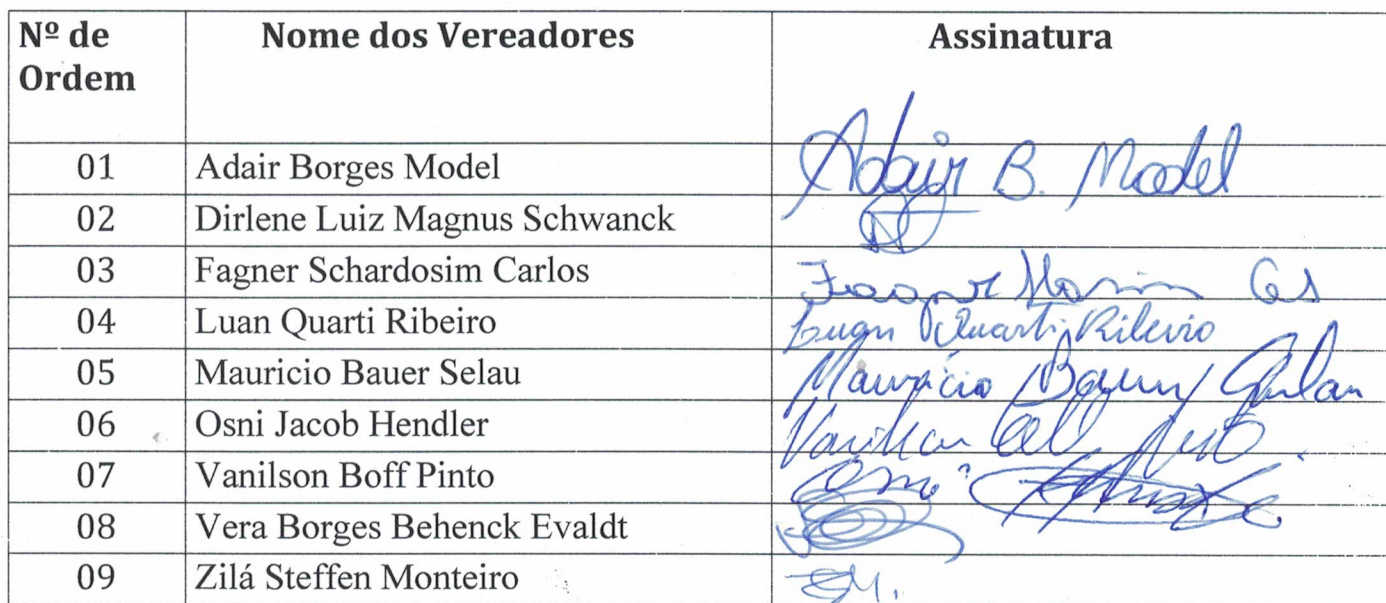 Nº de Ordem Nome dos Vereadores Assinatura
01 Adair Borges Model Adair B. Model
02 Dirlene Luiz Magnus Schwanck
03 Fagner Schardosim Carlos
04 Luan Quarti Ribeiro Luan Quarti Ribeiro
05 Mauricio Bauer Selau Maurício Bauer Selau
06 Osni Jacob Hendler
07 Vanilson Boff Pinto Osni
08 Vera Borges Behenck Evaldt
09 Zilá Steffen Monteiro